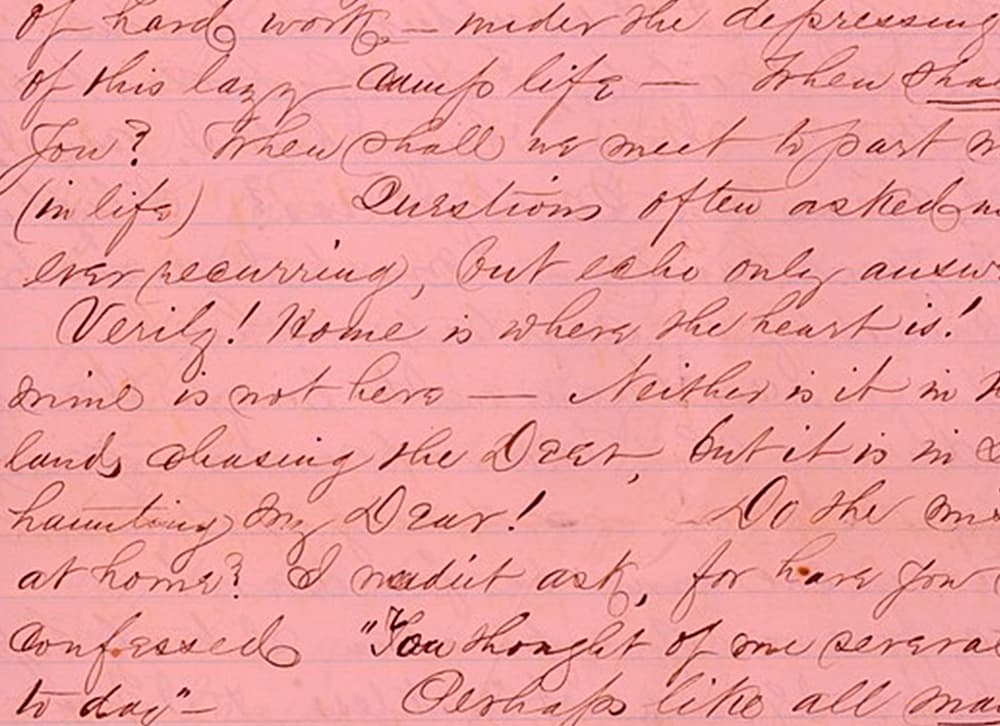 of hard work – under the depressing
of this lazy camp life — When sha
you? When shall we meet to part n
(in life) Questions often asked n
ever recurring, but echo only answ
Verily! Home is where the heart is!
mine is not here — Neither is it in
lands chasing the Deer, but it is in
haunting my Dear! Do the
at home? I needn't ask, for have you
confessed "You thought of me severa
to day" – Perhaps like all ma